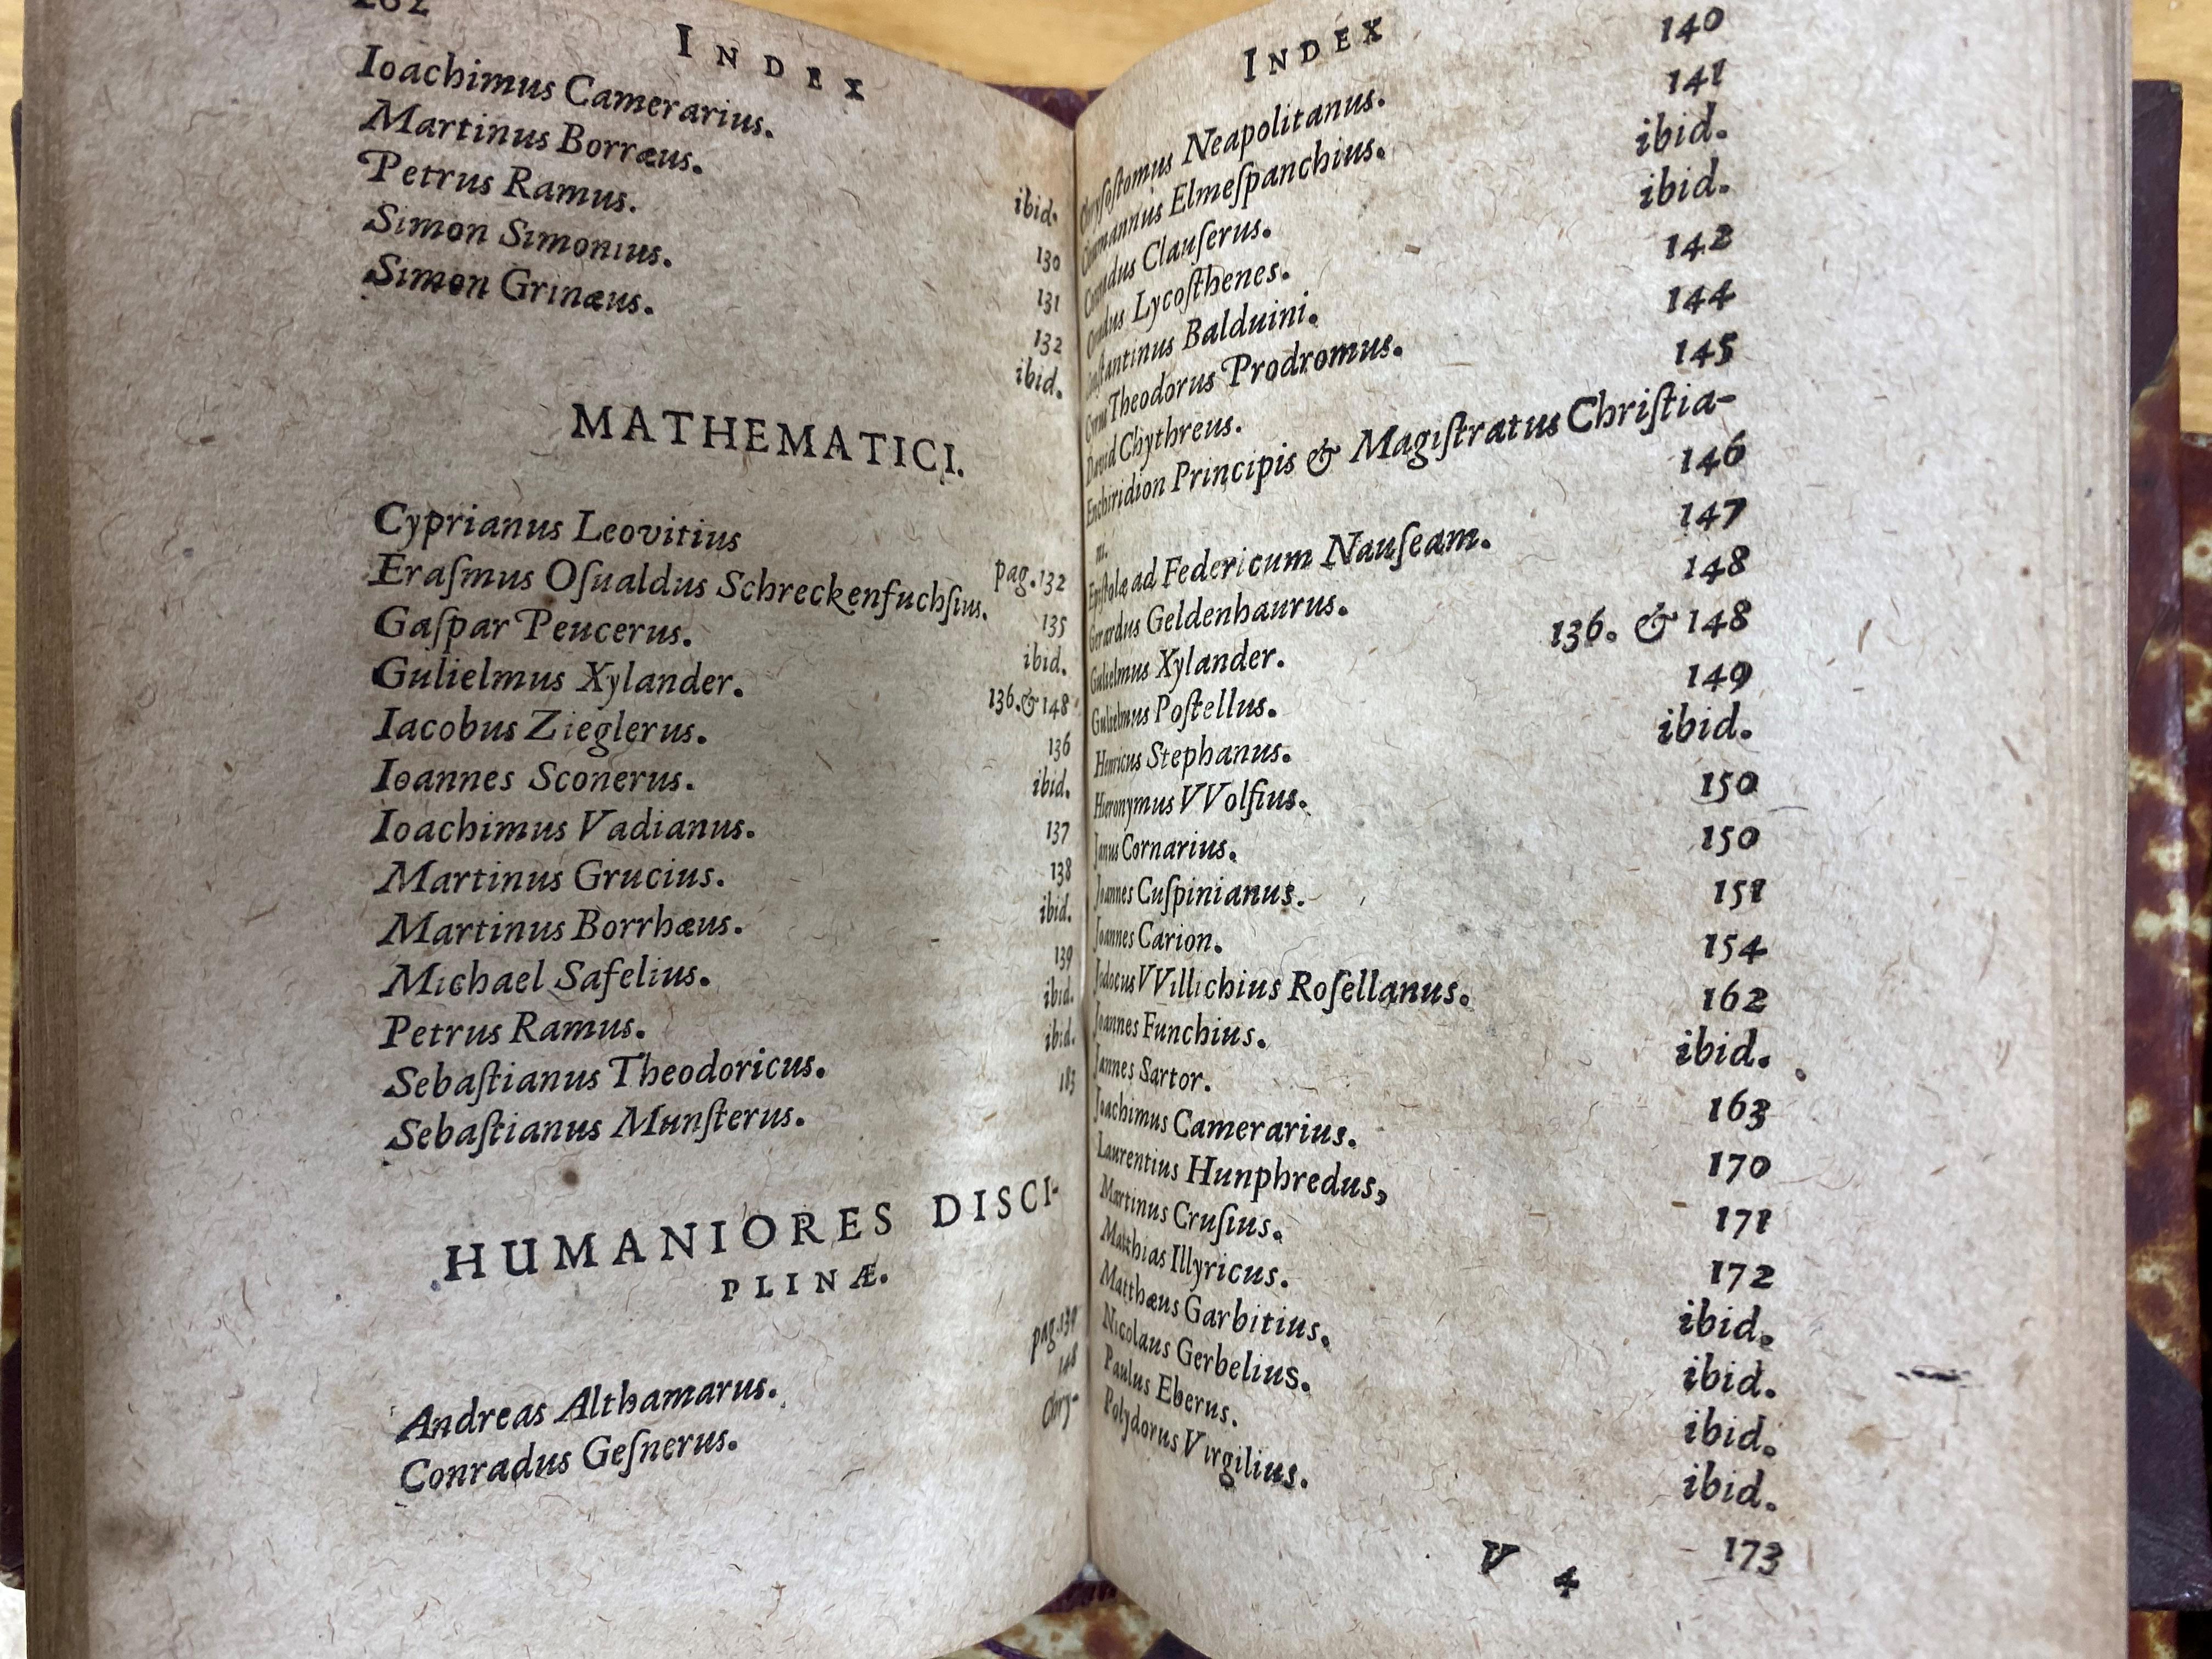 INDEX
Ioachimus Camerarius. ibid.
Martinus Borræus. 130
Petrus Ramus. 131
Simon Simonius. 132
Simon Grinæus. ibid.
MATHEMATICI.
Cyprianus Leovitius pag.132
Eraſmus Oſualdus Schreckenfuchſius. 135
Gaſpar Peucerus. ibid.
Gulielmus Xylander. 136.&148
Iacobus Zieglerus. 136
Ioannes Sconerus. ibid.
Ioachimus Vadianus. 137
Martinus Grucius. 138
Martinus Borrhæus. ibid.
Michael Safelius. 139
Petrus Ramus. ibid.
Sebaſtianus Theodoricus. ibid.
Sebaſtianus Munſterus. 183
HUMANIORES DISCI-
PLINÆ.
Andreas Althamarus. pag.139
Conradus Geſnerus. 148
Chry-
INDEX
Chryſoſtomus Neapolitanus. 140
Elmeſpanchius. 141
Clauſerus. ibid.
Lycoſthenes. ibid.
Balduini. 142
Theodorus Prodromus. 144
David Chythreus. 145
Enchiridion Principis & Magiſtratus Chriſtia-
ni. 146
Epiſtolæ ad Federicum Nauſeam. 147
Gerardus Geldenhaurus. 148
Gulielmus Xylander. 136. & 148
Gulielmus Poſtellus. 149
Henricus Stephanus. ibid.
Hieronymus VVolfius. 150
Ianus Cornarius. 150
Ioannes Cuſpinianus. 151
Ioannes Carion. 154
Iodocus VVillichius Roſellanus. 162
Ioannes Funchius. ibid.
Iannes Sartor. 163
Ioachimus Camerarius. 170
Laurentius Hunphredus, 171
Martinus Cruſius. 172
Matthias Illyricus. ibid.
Matthæus Garbitius. ibid.
Nicolaus Gerbelius. ibid.
Paulus Eberus. ibid.
Polydorus Virgilius. 173
V 4